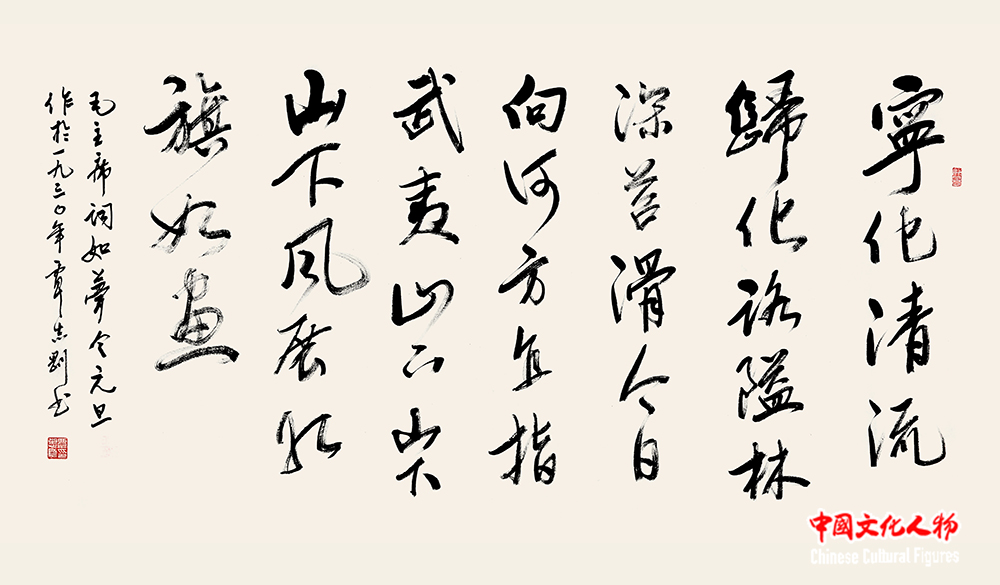 寧化清流
歸化路隘林
深苔滑今日
向何方直指
武夷山下山下
山下风展红
旗如画
毛主席词如夢令元旦
作於一九三〇年覃志刚书
中國文化人物
Chinese Cultural Figures